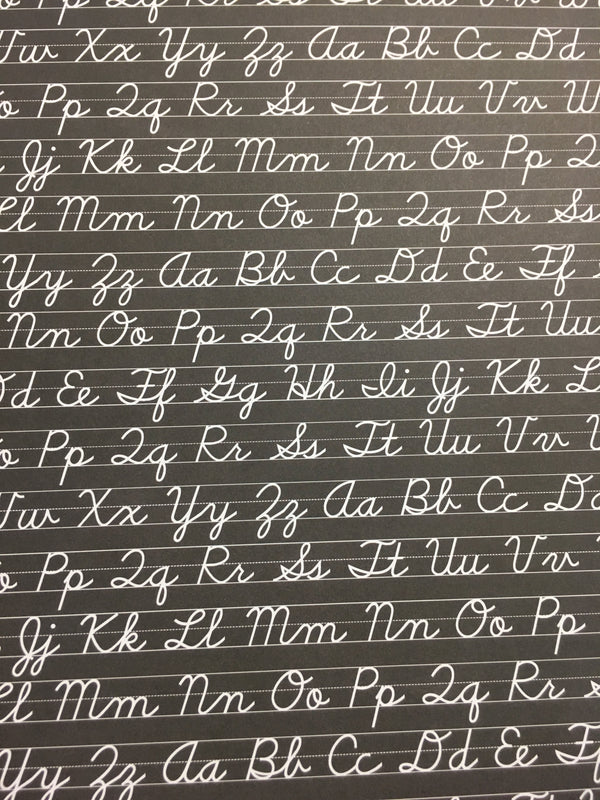 Pp Qq Rr Ss Tt Uu Vv
Xx Yy Zz Aa Bb Cc Dd
Pp Qq Rr Ss Tt Uu Vv
Jj Kk Ll Mm Nn Oo Pp
Mm Nn Oo Pp Qq Rr Ss
Yy Zz Aa Bb Cc Dd Ee Ff
Nn Oo Pp Qq Rr Ss Tt Uu
Dd Ee Ff Gg Hh Ii Jj Kk
Pp Qq Rr Ss Tt Uu Vv
Xx Yy Zz Aa Bb Cc Dd
Pp Qq Rr Ss Tt Uu Vv
Jj Kk Ll Mm Nn Oo Pp
Ll Mm Nn Oo Pp Qq Rr
Yy Zz Aa Bb Cc Dd Ee